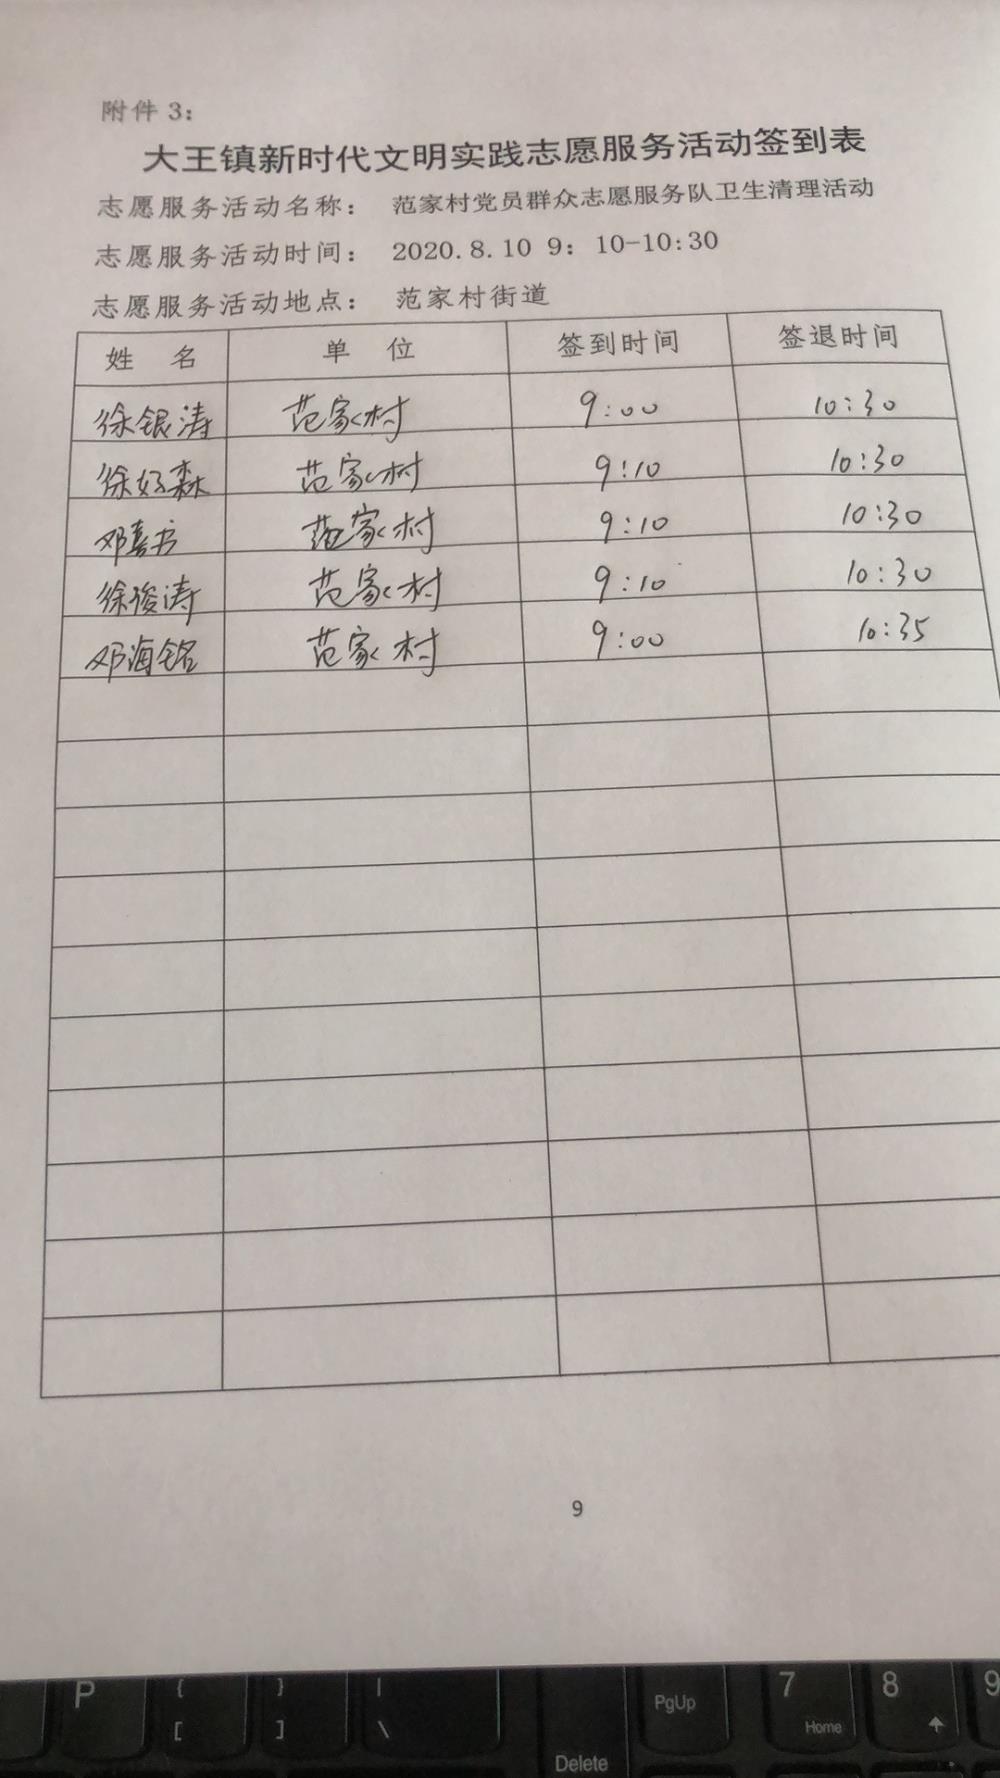 附件 3：
大王镇新时代文明实践志愿服务活动签到表
志愿服务活动名称： 范家村党员群众志愿服务队卫生清理活动
志愿服务活动时间： 2020.8.10 9：10-10:30
志愿服务活动地点： 范家村街道
姓 名 单 位 签到时间 签退时间
徐银涛 范家村 9:00 10:30
徐好森 范家村 9:10 10:30
邓喜书 范家村 9:10 10:30
徐俊涛 范家村 9:10 10:30
邓海铭 范家村 9:00 10:35
9
P { } | 7 8 9
[ ] \ PgUp Home
Delete